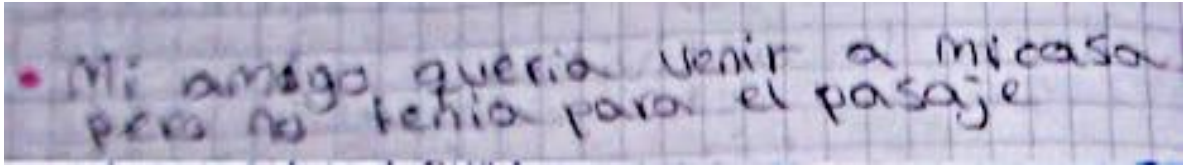 • Mi amigo queria venir a mi casa
pero no tenia para el pasaje